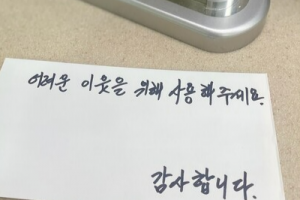 어려운 이웃을 위해 사용해주세요.
감사합니다.